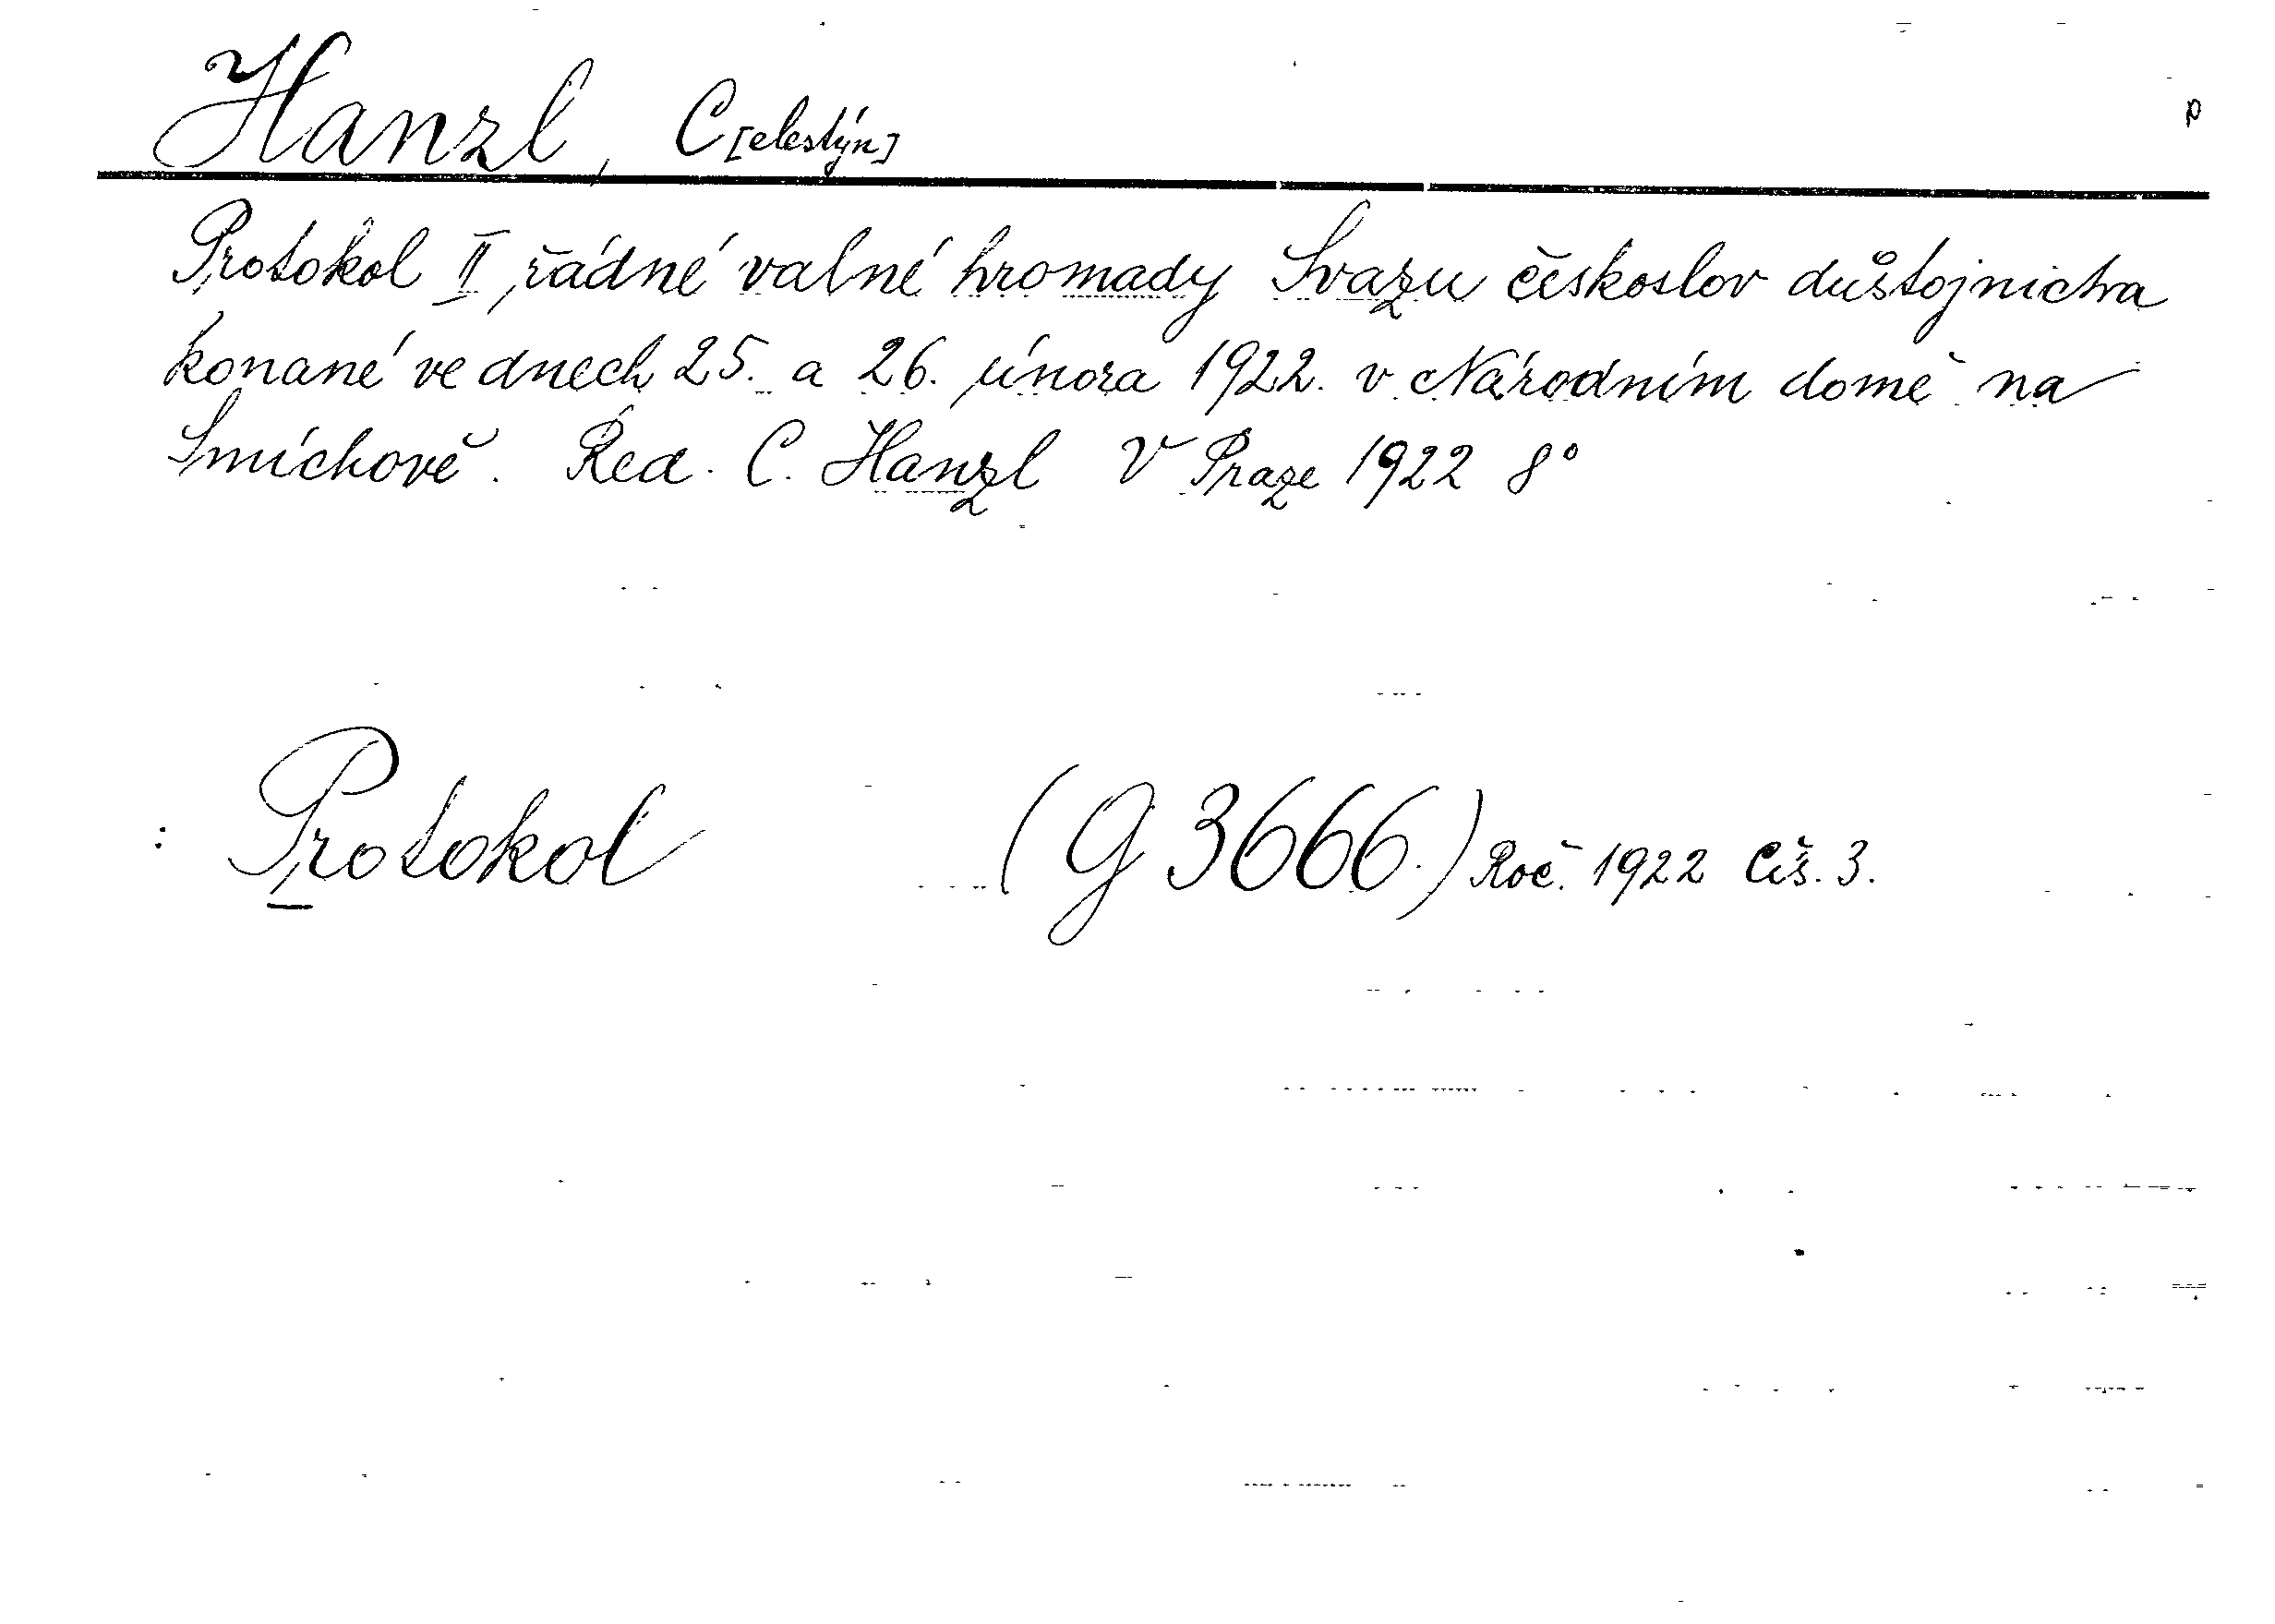 Hanzl, C[elestýn]
Protokol II řádné valné hromady Svazu českoslov důstojnictva
konané ve dnech 25. a 26. února 1922. v Národním domě na
Smíchově. Red. C. Hanzl V Praze 1922 8°
: Protokol (G 3666.) Roč. 1922 Čís. 3.